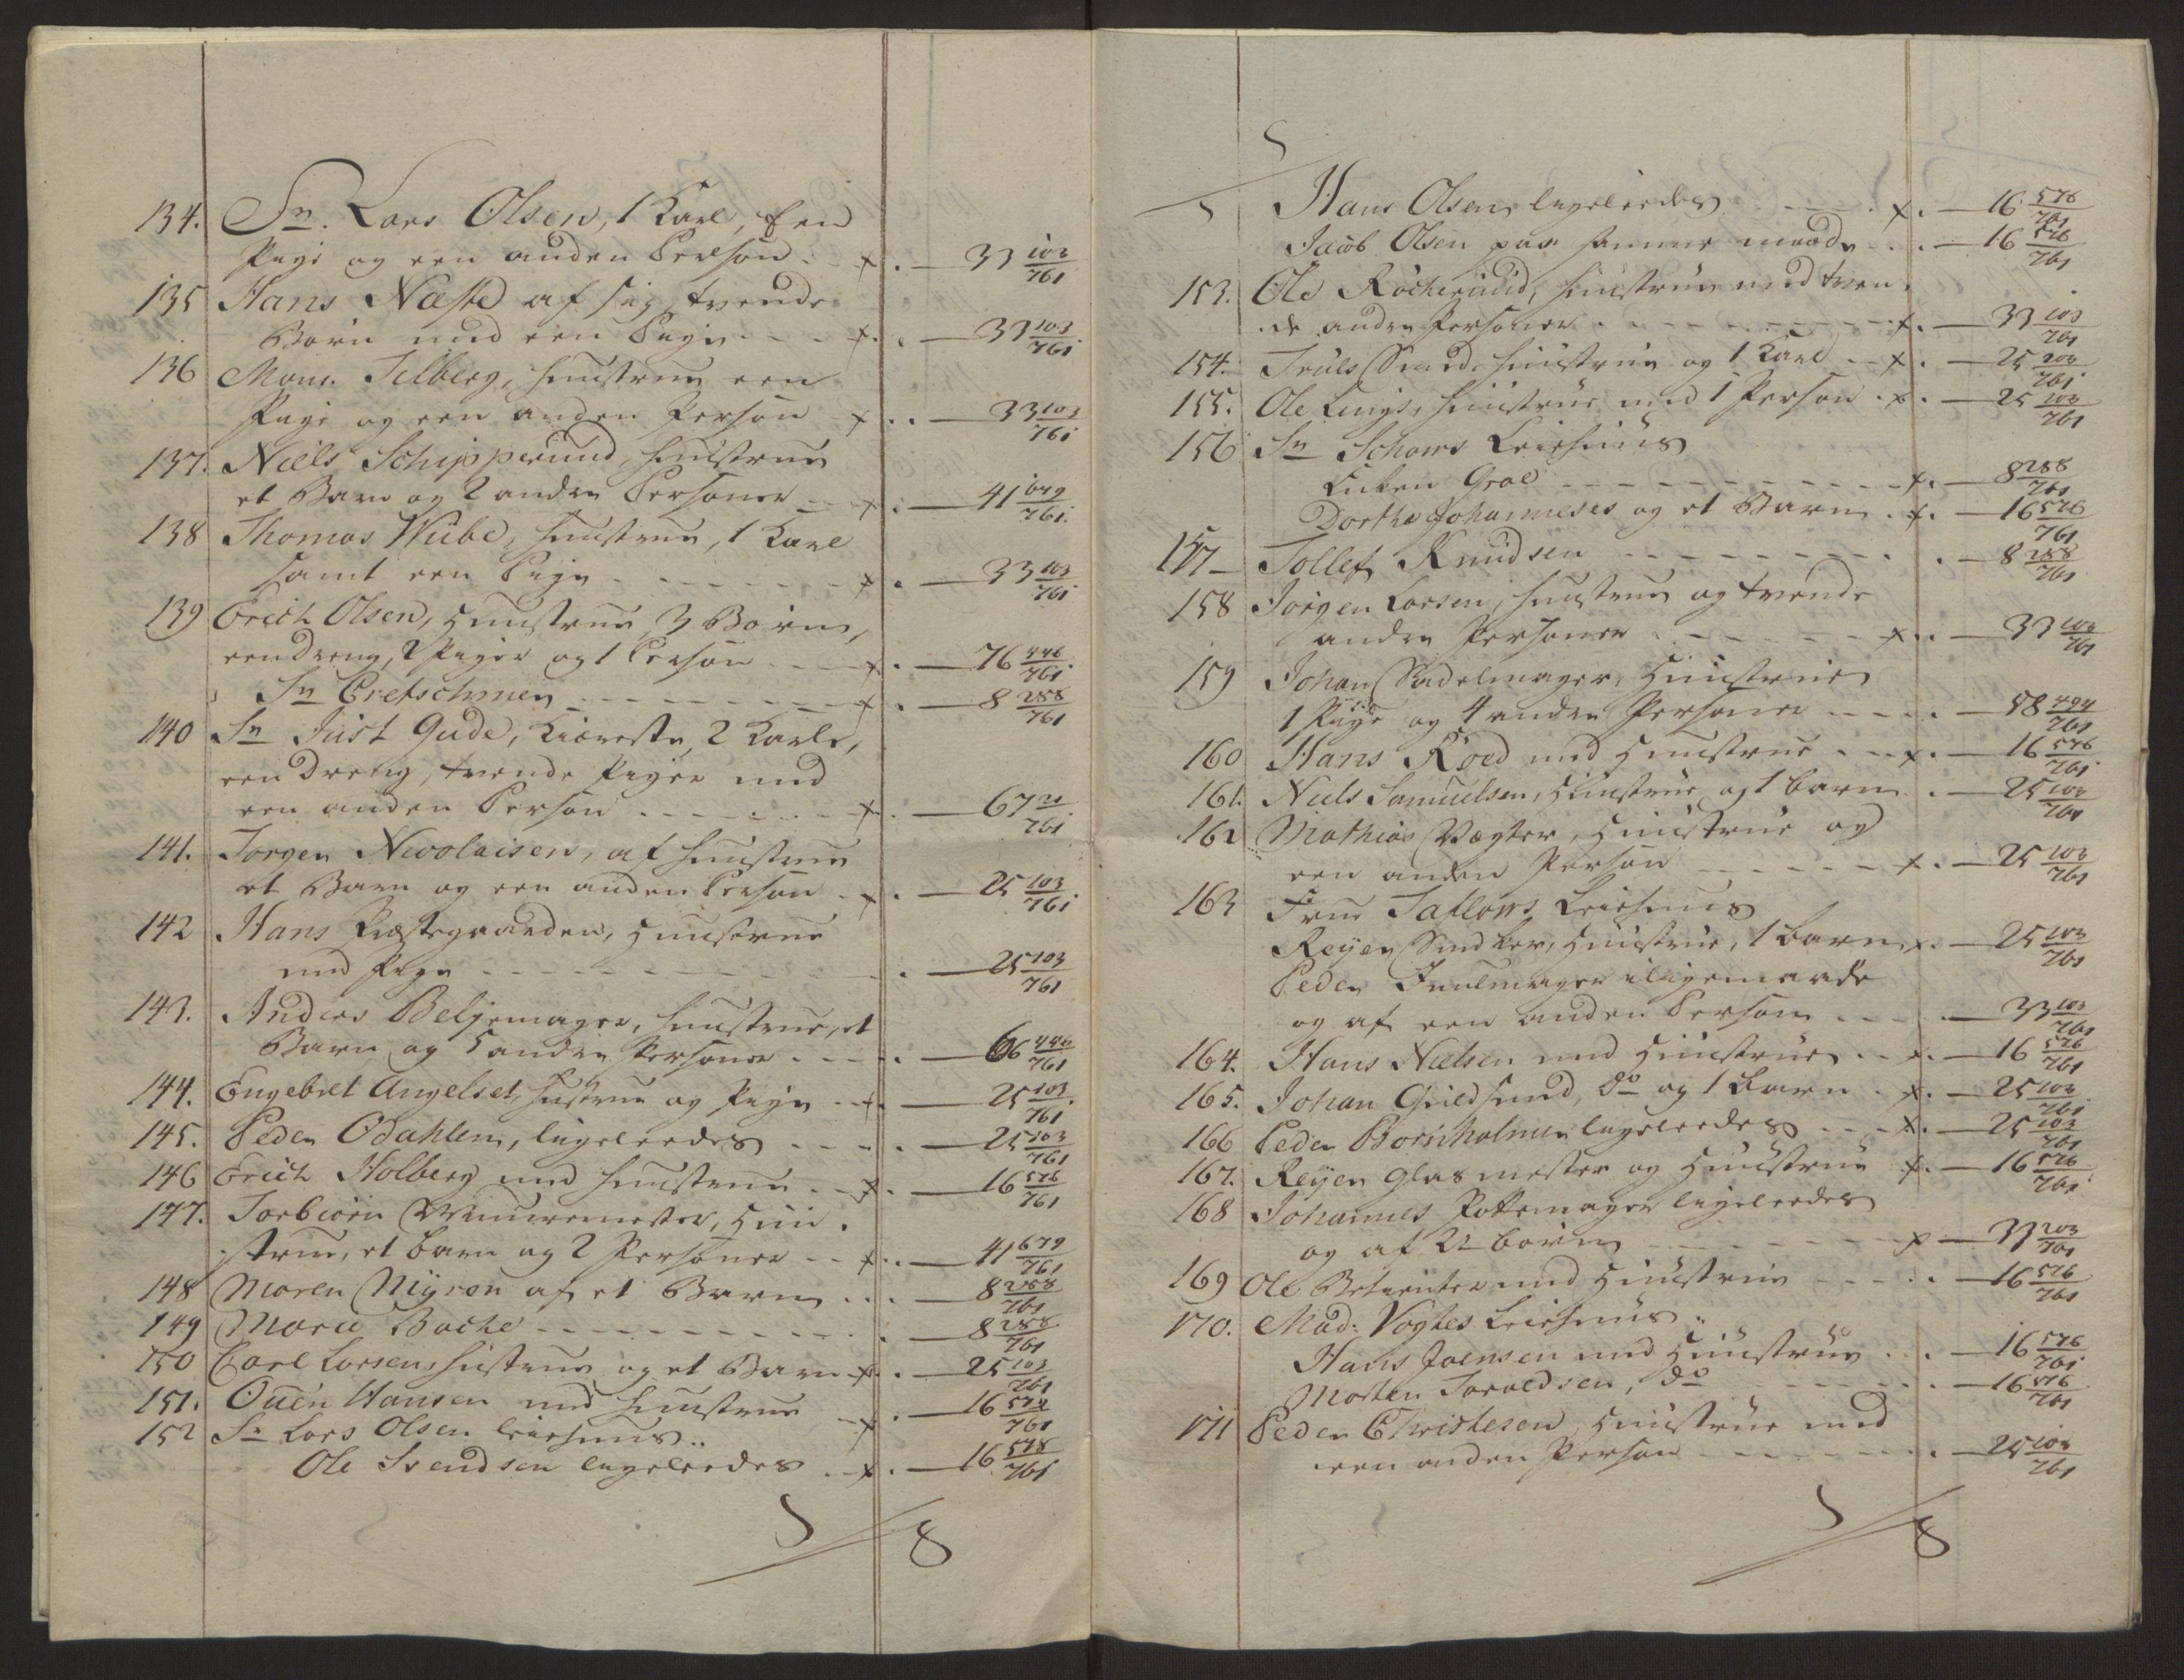 134. Sr. Lars Olsen, 1 Karl, Een
Pige og een anden Person . . x . — 33 103/761
135 Hans Næste af sig, tvende
Børn med een Pige . . . x . — 33 103/761
136 Mons. Tilberg, Huustrue een
Pige og een anden Person x . . — 33 103/761
137. Niels Schipperund, Huustrue
et Barn og 2 andre Personer x . — 41 679/761
138 Thomas Wübe, Huustrue, 1 Karl
samt een Pige . . . . x . — 33 103/761
139 Erich Olsen, Huustrue, 3 Børn,
een Dreng, 2 Piger og 1 Person . . x . — 76 446/761
Sr Cretschmer . . . . x . — 8 288/761
140 Sr Just Gude, Kiæreste, 2 Karle,
een Dreng, tvende Piger med
een anden Person . . . . x . — 67 21/761
141. Jørgen Nicolaisen, af Huustrue
et Barn og een anden Person . x . — 25 103/761
142 Hans Præstegaarden, Huustrue
med Pige . . . . — 25 103/761
143. Anders Beljemager, Huustrue, et
Barn og 5 andre Personer . . . — 66 446/761
144. Engebret Angelset, Hustrue og Pige . . x . — 25 103/761
145. Peder Odahlen, ligeleedes . . . — 25 103/761
146 Erich Holberg med Huustrue . . x . — 16 576/761
147. Torbiørn Muuremester, Huu-
strue, et Barn og 2 Personer . . x . — 41 679/761
148 Maren Myren af et Barn . . . — 8 288/761
149 Maria Bache . . . . — 8 288/761
150 Carl Larsen, Hustrue og et Barn x . — 25 103/761
151. Ouen Hansen med Huustrue x . — 16 576/761
152 Sr Lars Olsen Leiehuus . . x
Ole Svendsen ligeleedes . . x . — 16 578/761
Hans Olsen ligeleedes . . . . x . — 16 576/761
Jacob Olsen paa samme maade . . . — 16 576/761
153. Ole Røcherüüd, Huustrue med tven-
de andre Personer . . . . x . — 33 103/761
154. Truls Smed, Huustrue og 1 Karl . . x . — 25 103/761
155. Ole Lunge, Huustrue med 1 Person . x . — 25 103/761
156 Sr Schows Leiehuus
Enken Groe . . . . x . — 8 288/761
Dorthe Johanneses og et Barn . x . — 16 576/761
157 — Tollef Knudsen . . . . — 8 288/761
158 Jørgen Larsen, Huustrue og tvende
andre Personer . . . . x . — 33 103/761
159 Johan Sadelmager, Huustrue
1 Pige og 4 andre Personer . . . . — 58 494/761
160 Hans Roed med Huustrue . . x . — 16 576/761
161. Niels Samuelsen, Huustrue og 1 barn . — 25 103/761
162 Mathias Vægter, Huustrue og
een anden Person . . . . x . — 25 103/761
163 Frue Taflows Leiehuus
Reyer Smedker, Huustrue, 1 barn x . — 25 103/761
Peder Juulmager i ligemaade
og af een anden Person . . . — 33 103/761
164. Hans Nielsen med Huustrue . . x . — 16 576/761
165. Johan Guldsmed, do og 1 Barn . x . — 25 103/761
166 Peder Bornholmer ligeleedes . . x . — 25 103/761
167. Reyer Glasmester og Huustrue x . — 16 576/761
168 Johannes Pottemager ligeleedes
og af 2de børn . . . . x — 33 103/761
169 Ole Betienter med Huustrue . . . . — 16 576/761
170. Mad: Vogtes Leiehuus . .
Hans Joensen med Huustrue . . . — 16 576/761
Morten Toroldsen, do . . . . — 16 576/761
171 Peder Christesen, Huustrue med
een anden Person . . . . — 25 103/761